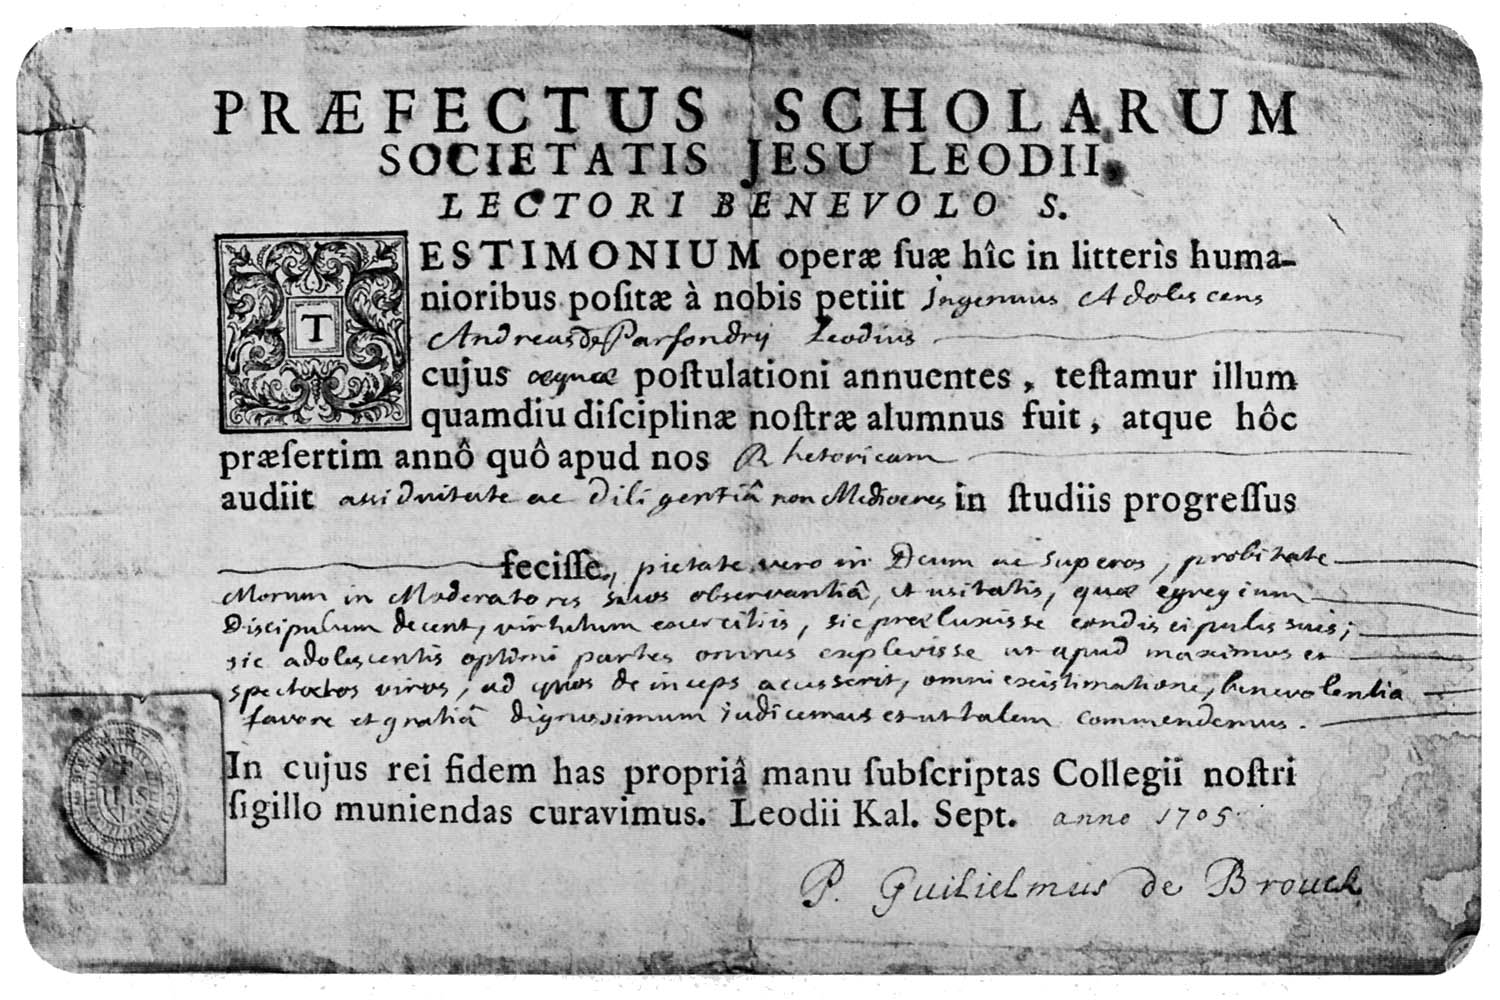 PRÆFECTUS SCHOLARUM
SOCIETATIS JESU LEODII,
LECTORI BENEVOLO S.
TESTIMONIUM operæ ſuæ hîc in litterìs huma-
nioribus poſitæ à nobis petiit Ingenuus Adolescens
Andreas de Parfondry Leodius
cujus æquæ poſtulationi annuentes, teſtamur illum
quamdiu diſciplinæ noſtræ alumnus fuit, atque hôc
præſertim annô quô apud nos Rhetoricam
audiit assiduitate ac diligentiâ non Mediocres in ſtudiis progreſſus
feciſſe, pietate vero in Deum ac superos, probitate
Morum in Moderatores suos observantiâ, et usitatis, quæ egregium
Discipulum decent, virtutum exercitiis, sic præluxisse condiscipulis suis;
sic adolescentis optimi partes omnes explevisse ut apud maximos et
spectatos viros, ad quos deinceps accesserit, omni existimatione, benevolentia
favore et gratiâ dignissimum judicemus et ut talem commendemus.
In cujus rei fidem has propriâ manu ſubſcriptas Collegii noſtri
ſigillo muniendas curavimus. Leodii Kal. Sept. anno 1705
P. Guilielmus de Brouck
IHS